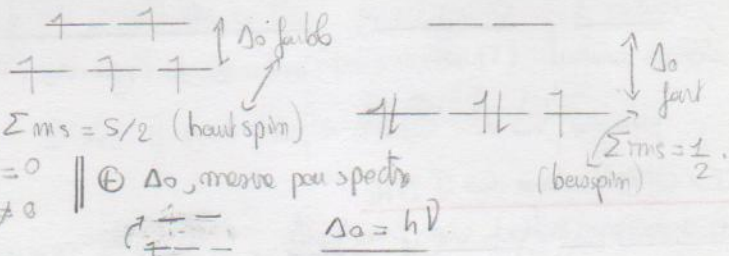 Δo faible
Δo
fort
Σms = 5/2 (haut spin)
Σms = 1/2.
(bas spin)
=0
≠0
⊕ Δo, mesure par spectro
Δo = hν